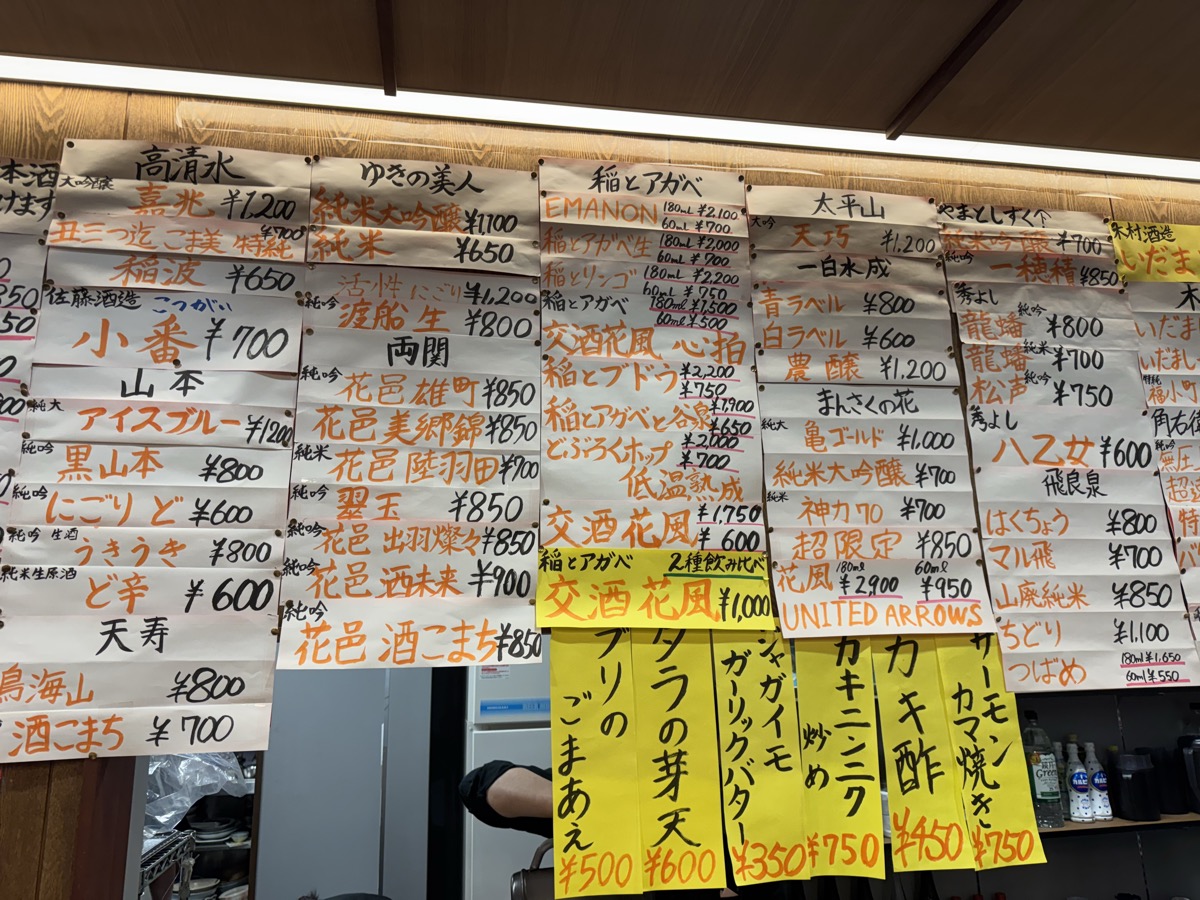 本酒
けます
高清水
大吟醸 嘉兆 ¥1,200
丑三つ迄 こま美 特純 ¥700
稲波 ¥650
佐藤酒造 こつがい
小番 ¥700
山本
純大 アイスブルー ¥1200
純吟 黒山本 ¥800
純吟 にごり ど ¥600
純吟 生酒 うきうき ¥800
純米生原酒 ど辛 ¥600
天寿
鳥海山 ¥800
酒こまち ¥700
ゆきの美人
純米大吟醸 ¥1100
純米 ¥650
活性にごり ¥1,200
純吟 渡船 生 ¥800
両関
純吟 花邑 雄町 ¥850
花邑 美郷錦 ¥850
純米 花邑 陸羽田 ¥700
純吟 翠玉 ¥850
純吟 花邑 出羽燦々 ¥850
純吟 花邑 酒未来 ¥900
純吟 花邑 酒こまち ¥850
稲とアガベ
EMANON 180ml ¥2,100
60ml ¥700
稲とアガベ 生 180ml ¥2,000
60ml ¥700
稲とリンゴ 180ml ¥2,200
60ml ¥750
稲とアガベ 180ml ¥1,500
60ml ¥500
交酒花風 心拍
稲とブドウ ¥2,200
¥750
稲とアガベと谷泉 ¥1,900
¥650
どぶろくホップ ¥2,000
¥700
低温熟成
交酒花風 ¥1,750
¥600
稲とアガベ 2種飲み比べ
交酒花風 ¥1,000
太平山
大吟 天巧 ¥1,200
一白水成
青ラベル ¥800
白ラベル ¥600
農醸 ¥1,200
まんさくの花
純大 亀ゴールド ¥1,000
純米大吟醸 ¥700
純米 神力70 ¥700
超限定 ¥850
花風 180ml ¥2,900 60ml ¥950
UNITED ARROWS
やまとしずく
純米吟醸 ¥700
純吟 一穂積 ¥850
秀よし
龍蟠 純吟 ¥800
龍蟠 純米 ¥700
松声 純吟 ¥750
秀よし
八乙女 ¥600
飛良泉
はくちょう ¥800
マル飛 ¥700
山廃純米 ¥850
ちどり ¥1,100
つばめ 180ml ¥1,650
60ml ¥550
木村酒造
いだま
木
いだま
いだまし
特純 福小町
角右衛
純吟 無圧
超
特
ブリの
ごまあえ
¥500
タラの芽天
¥600
ジャガイモ
ガーリックバター
¥350
カキニンニク
炒め
¥750
カキ酢
¥450
サーモン
カマ焼き
¥750